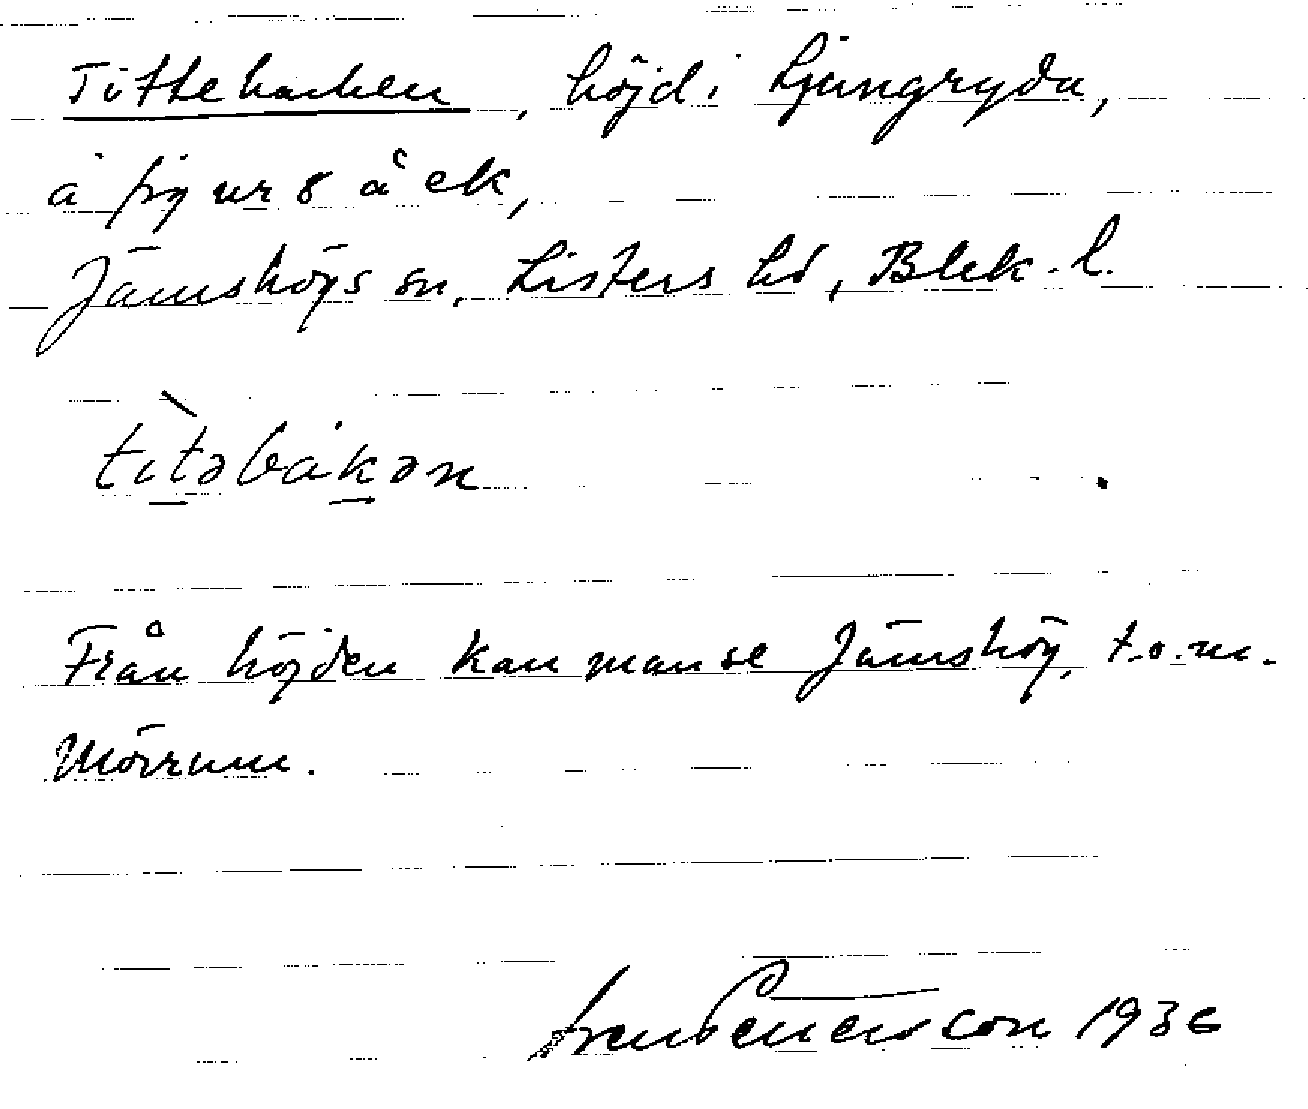 Tittebacken, höjd i Ljungryda,
å figur 8 å ek,
Jämshögs sn, Listers hd, Blek. l.
tìtəbàkən
Från höjden kan man se Jämshög, t.o.m.
Mörrum.
1936